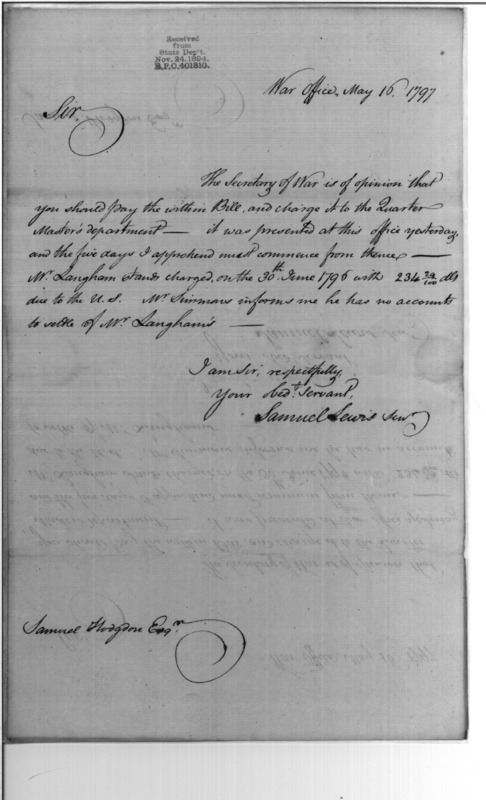 Received
from
State Dep't.
Nov. 24. 1894.
R.P.O. 401810.
War Office, May 16. 1797
Sir.
The Secretary of War is of opinion that
you should pay the within Bill, and charge it to the Quarter
Master's department — it was presented at this office yesterday,
and the five days I apprehend must commence from thence —
Mr Langham stands charged, on the 30th June 1796 with 234 dlls
due to the U.S. Mr Simmons informs me he has no accounts
to settle of Mr Langham's —
I am Sir, respectfully
Your Obedt Servant,
Samuel Lewis Senr
Samuel Hodgdon Esqr